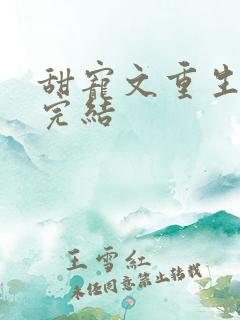 甜寵文重生
完結
王雪紅
未经同意禁止转载